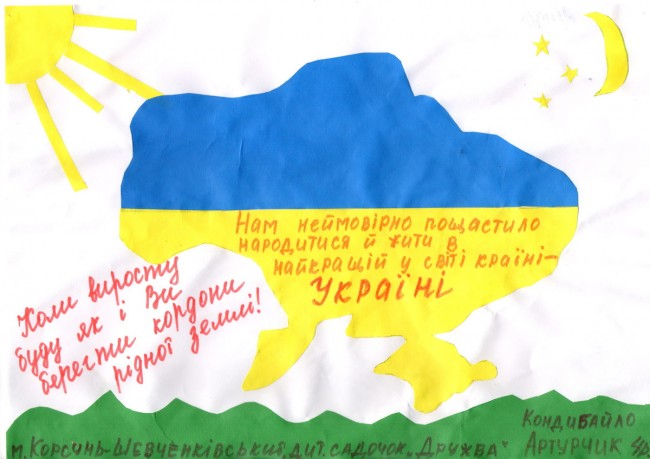 Нам неймовірно пощастило
народитися й жити в
найкращій у світі країні–
Україні
Коли виросту
буду як і Ви
берегти кордони
рідної землі!
Кондибайло
м. Корсунь-Шевченківський, дит. садочок „Дружба" Артурчик